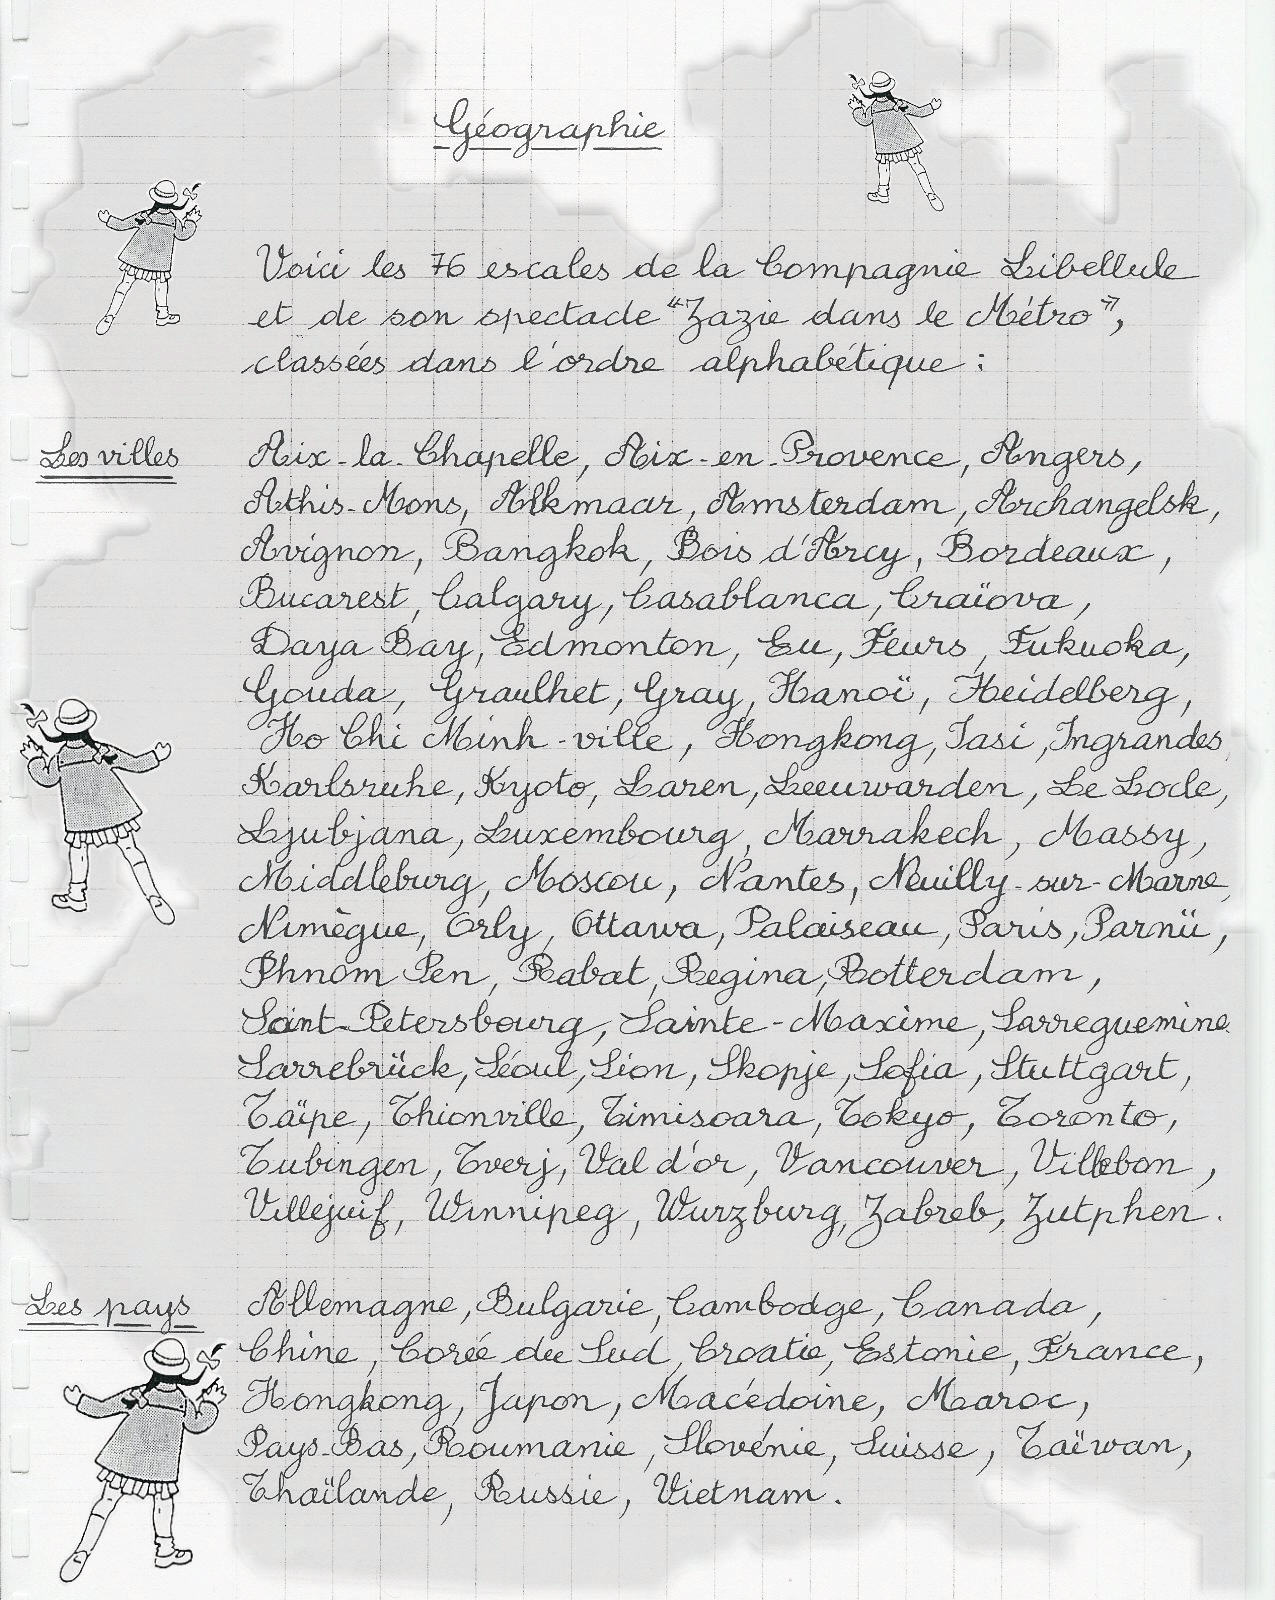 Géographie
Voici les 76 escales de la Compagnie Libellule
et de son spectacle "Zazie dans le Métro",
classées dans l'ordre alphabétique :
Les villes
Aix-la-Chapelle, Aix-en-Provence, Angers,
Athis-Mons, Alkmaar, Amsterdam, Archangelsk,
Avignon, Bangkok, Bois d'Arcy, Bordeaux,
Bucarest, Calgary, Casablanca, Craïova,
Daya Bay, Edmonton, Eu, Feurs, Fukuoka,
Gouda, Graulhet, Gray, Hanoï, Heidelberg,
Ho Chi Minh-ville, Hongkong, Iasi, Ingrandes,
Karlsruhe, Kyoto, Laren, Leeuwarden, Le Locle,
Ljubjana, Luxembourg, Marrakech, Massy,
Middleburg, Moscou, Nantes, Neuilly-sur-Marne,
Nimègue, Orly, Ottawa, Palaiseau, Paris, Parnü,
Phnom Pen, Rabat, Regina, Rotterdam,
Saint-Petersbourg, Sainte-Maxime, Sarreguemine
Sarrebrück, Séoul, Sion, Skopje, Sofia, Stuttgart,
Taïpe, Thionville, Timisoara, Tokyo, Toronto,
Tubingen, Tverj, Val d'or, Vancouver, Villebon,
Villejuif, Winnipeg, Wurzburg, Zabreb, Zutphen.
Les pays
Allemagne, Bulgarie, Cambodge, Canada,
Chine, Corée du Sud, Croatie, Estonie, France,
Hongkong, Japon, Macédoine, Maroc,
Pays-Bas, Roumanie, Slovénie, Suisse, Taïwan,
Thaïlande, Russie, Vietnam.